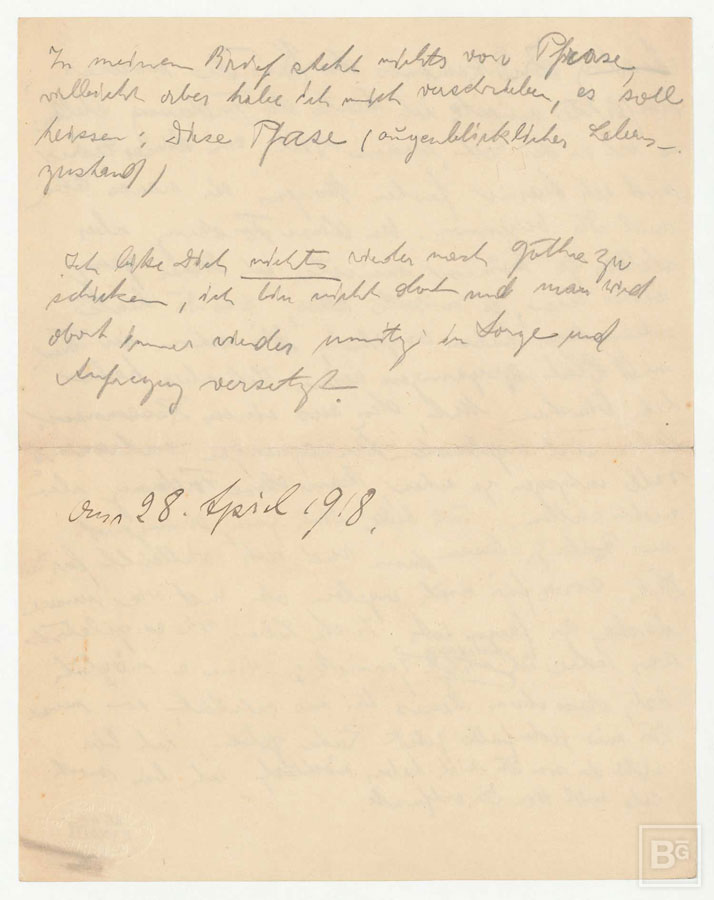 In meinem Brief steht nichts von Phrase,
vielleicht aber habe ich mich verschrieben, es soll
heissen: diese Pfase (augenblicklicher Lebens-
zustand)
Ich bitte Dich nichts wieder nach Gotha zu
schicken, ich bin nicht dort und man wird
dort immer wieder unnötig in Sorge und
Aufregung versetzt.
28. April 1918.
BG